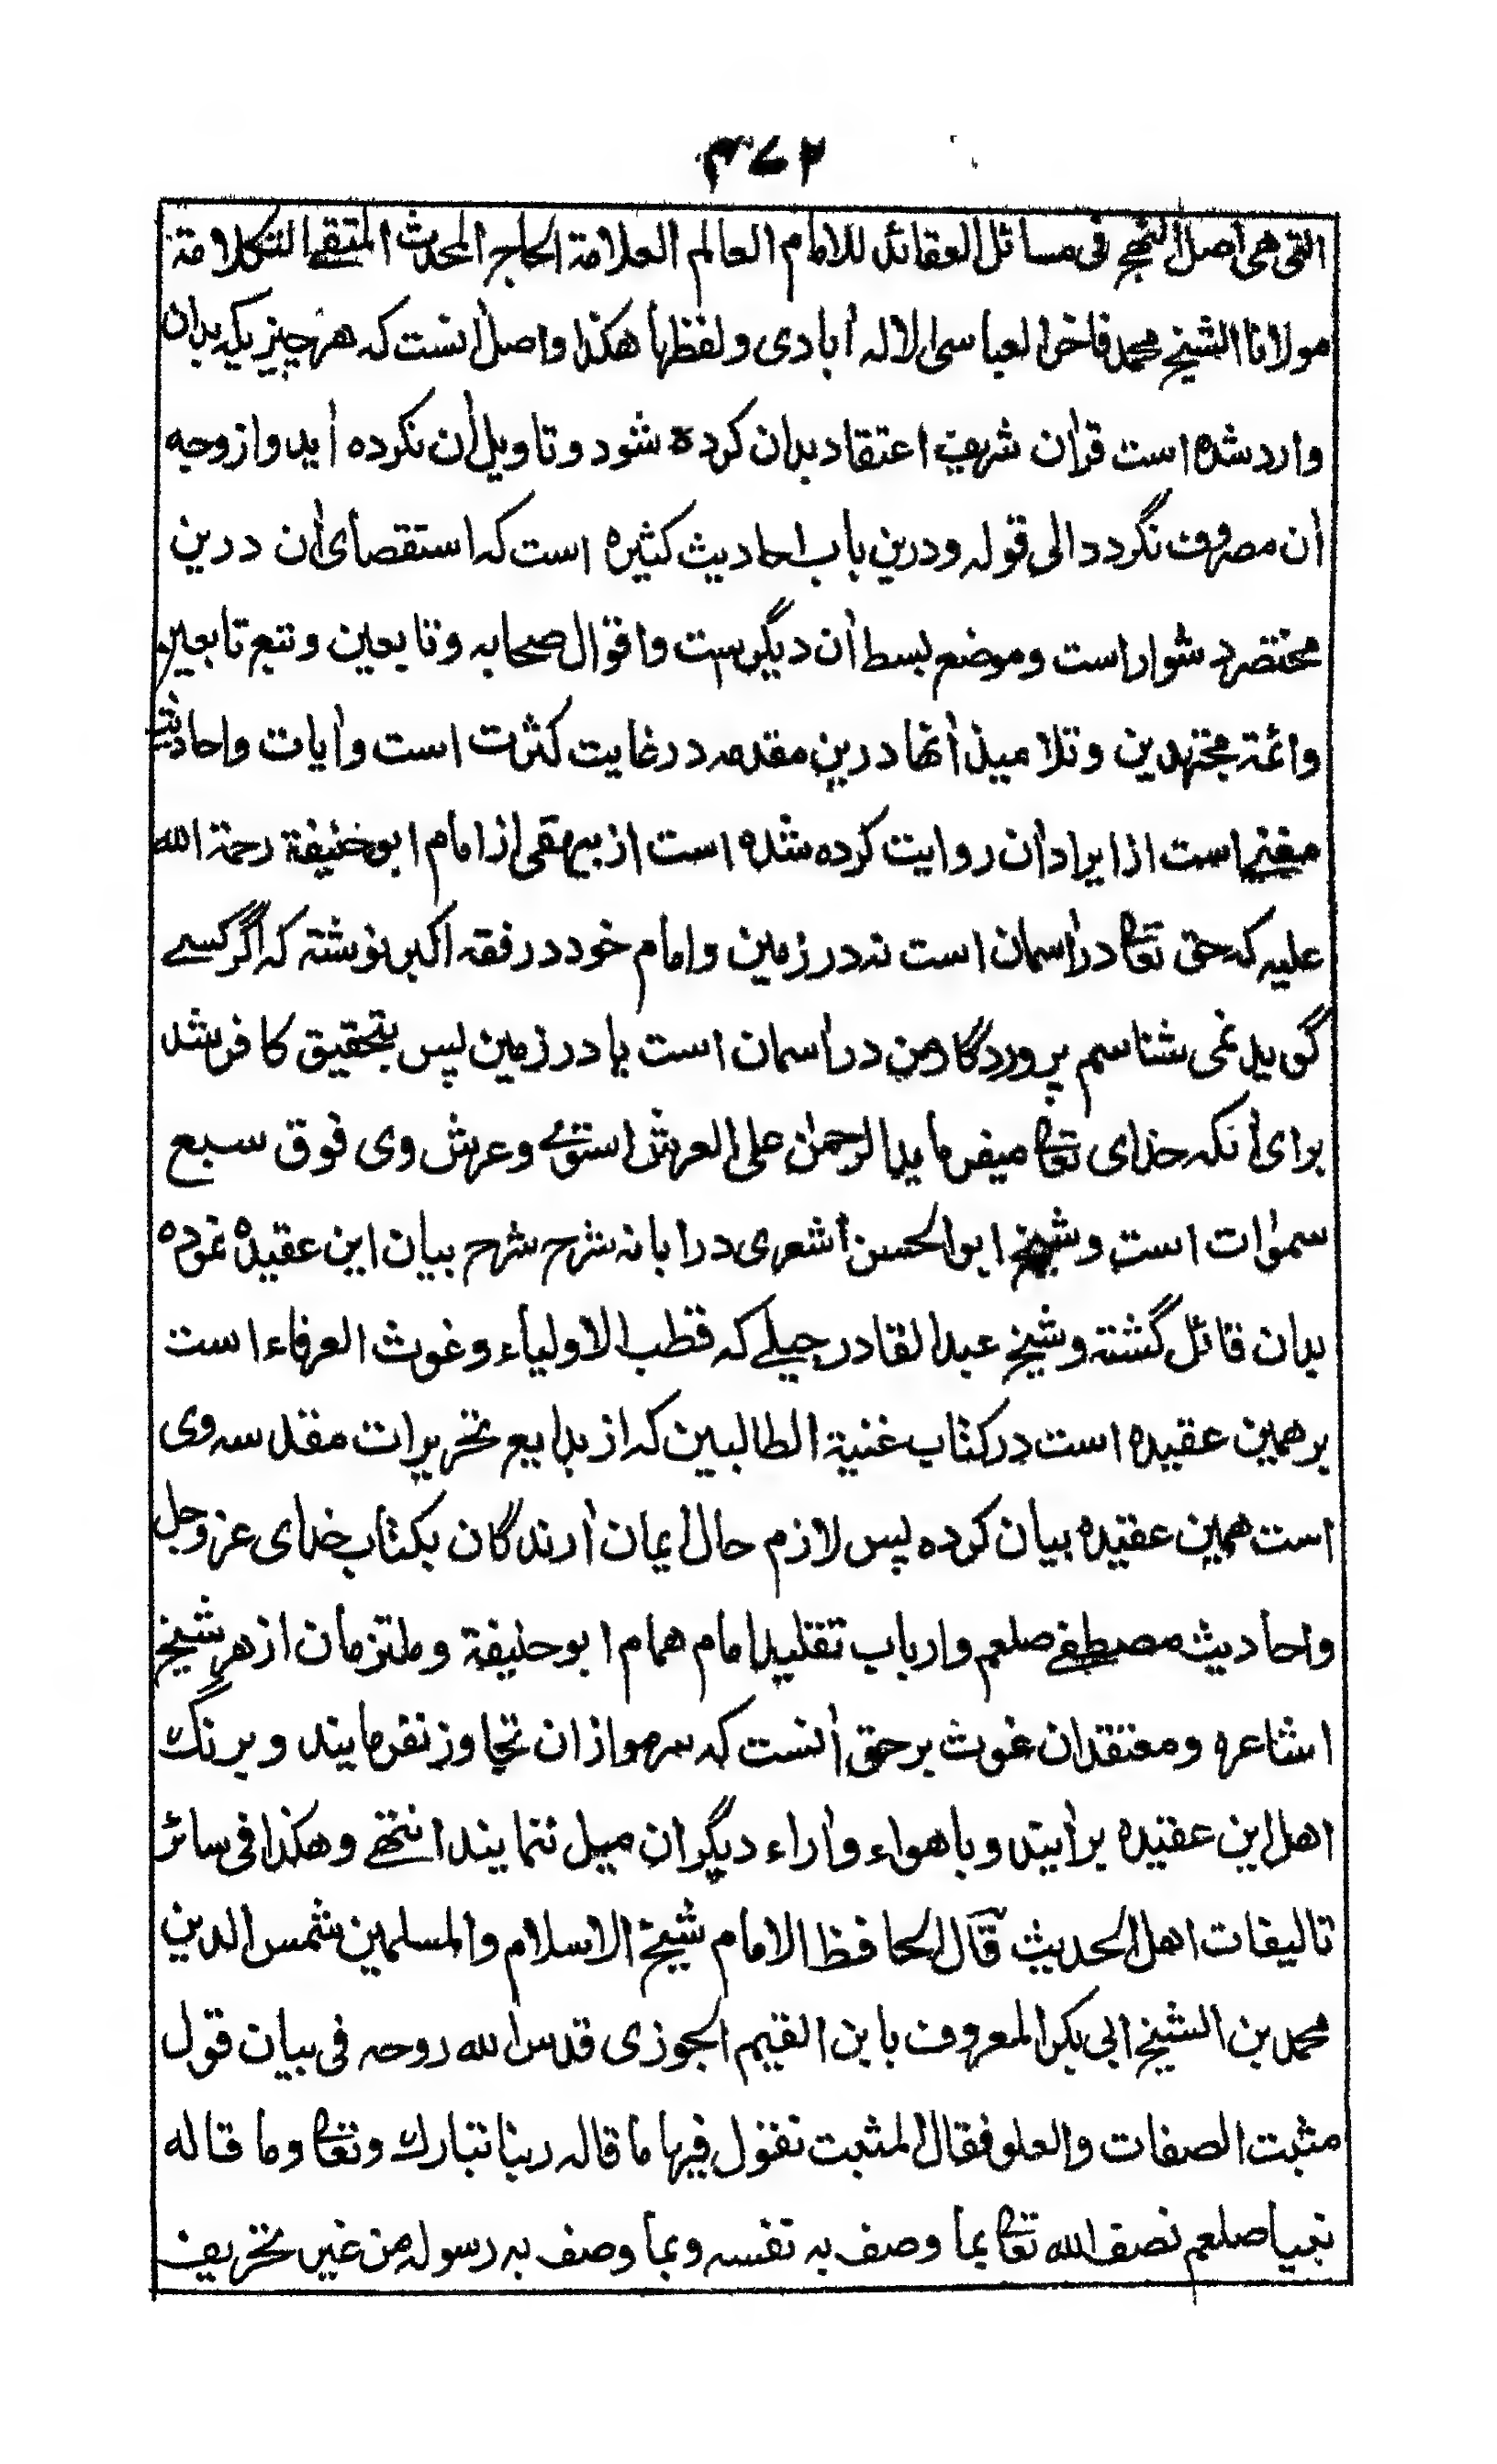 ۴۷۲
التی هی اصل النجے فی مسائل العقائد للامام العالم العلامة الحاج المحدث المتقے
مولانا الشیخ محمد فاخر العباسی الاله أبادی ولفظها هکذا واصل انست که هر چیزیکه بدان
وارد شده است قرأن شریف اعتقاد بدان کرده شود وتاویل أن نکرده أید واز وجه
أن مصروف نگردد الی قوله ودرین باب احادیث کثیره است که استقصای أن درین
مختصر دشوار است وموضع بسط أن دیگرست واقوال صحابه وتابعین وتبع تابعین
وائمة مجتهدین وتلامیذ أنها درین مقدمه درغایت کثرت است وأیات واحادیث
مغنے است از ایراد أن روایت کرده شده است از بیهقی از امام ابو حنیفة رحمة الله
علیه که حق تعا در أسمان است نه در زمین وامام خود در فقه اکبر نوشته که اگر کسے
گوید نمی شناسم پروردگار من در أسمان است یا در زمین پس بتحقیق کافر شد
برای أنکه خدای تعا میفرماید الرحمٰن علی العرش استوے وعرش وی فوق سبع
سمٰوات است وشیخ ابو الحسن أشعری در ابانه شرح شرح بیان این عقیده نموده
بدان قائل گشته وشیخ عبد القادر جیلے که قطب الاولیاء وغوث العرفاء است
بر همین عقیده است در کتاب غنیة الطالبین که از بدایع تحریرات مقدسه وی
است همین عقیده بیان کرده پس لازم حال ایمان أرندگان بکتاب خدای عز وجل
واحادیث مصطفے صلعم وارباب تقلید امام همام ابو حنیفة وملتزمان از هر شیخ
اشاعره ومعتقدان غوث بر حق أنست که سر مو از ان تجاوز نفرمایند وبرنگ
اهل این عقیده برأیند وباهواء وأراء دیگران میل ننمایند انتهے وهکذا فی سائر
تالیفات اهل الحدیث قال الحافظ الامام شیخ الاسلام والمسلمین شمس الدین
محمد بن الشیخ ابی بکر المعروف بابن القیم الجوزی قدس الله روحه فی بیان قول
مثبت الصفات والعلو فقال المثبت نقول فیها ما قاله ربنا تبارك وتعا وما قاله
نبینا صلعم نصف الله تعا بما وصف به نفسه وبما وصف به رسوله من غیر تحریف